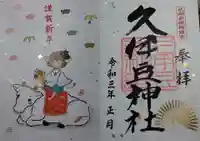 謹賀新年
奉拝
久伊豆神社
令和三年正月